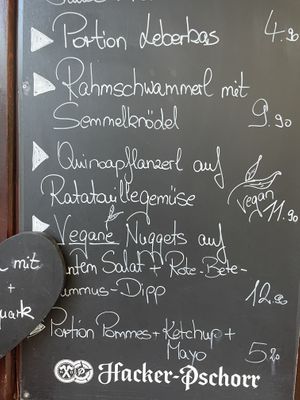 Portion Leberkas 4.90
Rahmschwammerl mit
Semmelknödel 9.90
Quinoapflanzerl auf
Ratatouillegemüse vegan 11.90
Vegane Nuggets auf
mit untem Salat + Rote-Bete-
+ ummus-Dipp 12.90
quark
Portion Pommes + Ketchup +
Mayo 5.20
Hacker-Pschorr